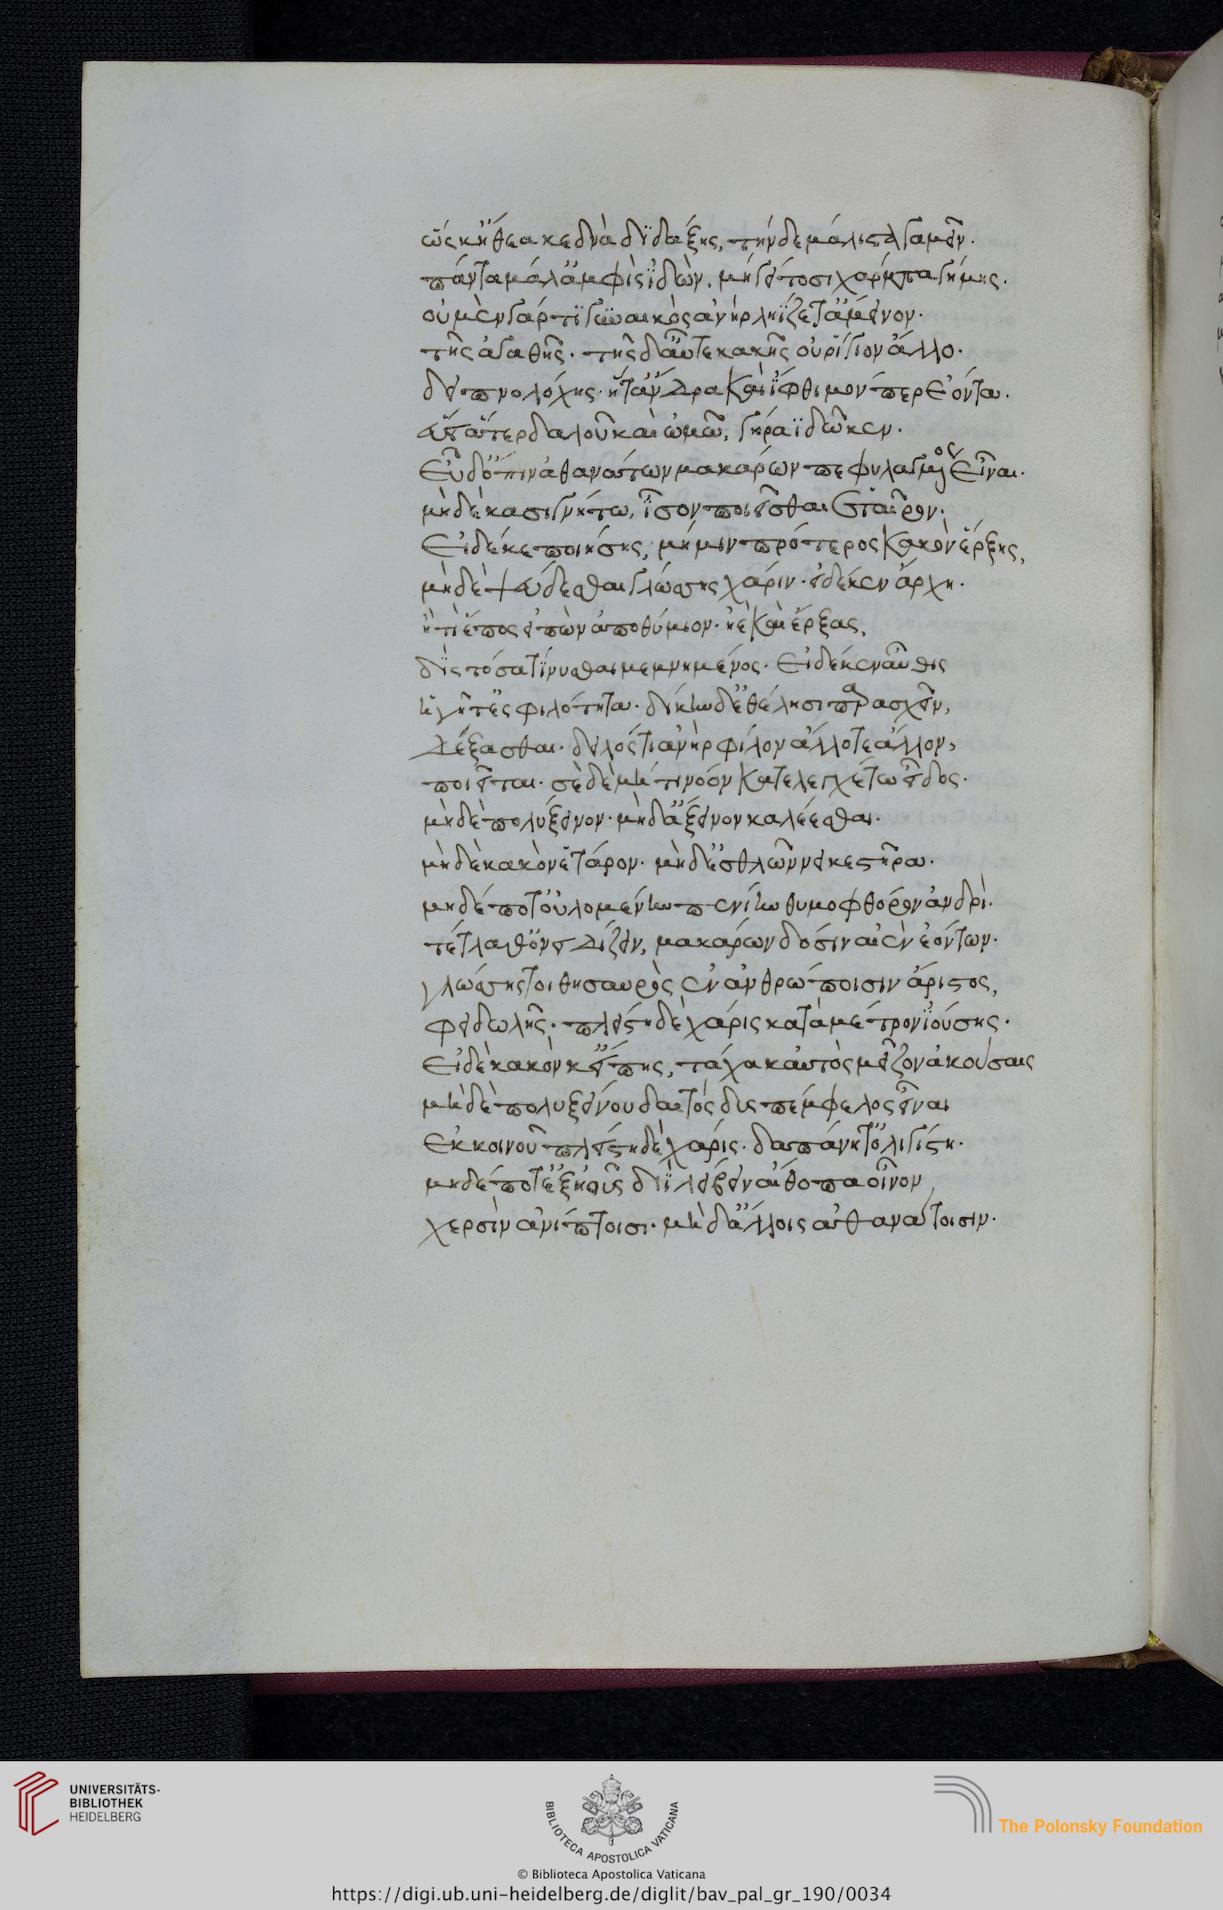 ὥς κ' ἤθεα κεδνὰ διδάξης, τὴν δε μάλιστα γαμεῖν.
πάντα μάλ' ἀμφὶς ἰδὼν. μὴ γείτοσι χάρματα γήμης.
οὐ μὲν γάρ τι γυναικὸς ἀνὴρ ληΐζετ' ἄμεινον.
τῆς ἀγαθῆς. τῆς δ' αὖτε κακῆς οὐ ῥίγιον ἄλλο.
δειπνολόχης. ἥτ' ἄνδρα καὶ ἴφθιμόν περ ἐόντα.
εὕει ἄτερ δαλοῦ καὶ ὠμῶ, γήραϊ δῶκεν.
Εὖ δ' ὄπιν ἀθανάτων μακάρων πεφυλαγμένος εἶναι.
μὴ δὲ κασιγνήτω, ἶσον ποιεῖσθαι ἑταῖρον.
Εἰ δέ κε ποιήσης, μή μιν πρότερος κακὸν ἔρξης,
μὴ δὲ ψεύδεσθαι γλώσσης χάριν. εἰ δέ κεν ἄρχη.
ἤ τι ἔπος εἰπὼν ἀποθύμιον. ἠὲ καὶ ἔρξας,
δὶς τόσα τίνυσθαι μεμνημένος. Εἰ δέ κεν αὖθις
ἡγῆτ' ἐς φιλότητα. δίκην δ' ἐθέλησι παρασχεῖν,
Δέξασθαι. δειλός τοι ἀνὴρ φίλον ἄλλοτε ἄλλον,
ποιεῖται. σὲ δὲ μή τι νόον κατελεγχέτω εἶδος.
μὴ δὲ πολύξεινον. μὴ δ' ἄξεινον καλέεσθαι.
μὴ δὲ κακὸν ἑτάρον. μὴ δ' ἐσθλῶν νεικεστῆρα.
μηδέ ποτ' οὐλομένην πενίην θυμοφθόρον ἀνδρὶ.
τέτλαθ' ὀνειδίζειν, μακάρων δόσιν αἰὲν ἐόντων.
γλώσσης τοι θησαυρὸς ἐν ἀνθρώποισιν ἄριστος,
φειδωλῆς. πλείστη δὲ χάρις κατὰ μέτρον ἰούσης.
Εἰ δὲ κακὸν κ' εἴπης, τάχα κ' αὐτὸς μεῖζον ἀκούσαις
μὴ δὲ πολυξείνου δαιτὸς δυσπέμφελος εἶναι
Εκ κοινοῦ πλείστη δὲ χάρις. δαπάνη τ' ὀλιγίστη.
μηδέ ποτ' ἐξ ἠοῦς διῒ λείβειν αἴθοπα οἶνον
χερσὶν ἀνίπτοισι. μὴ δ' ἄλλοις ἀθανάτοισιν.
UNIVERSITÄTS-
BIBLIOTHEK
HEIDELBERG
BIBLIOTECA APOSTOLICA VATICANA
The Polonsky Foundation
© Biblioteca Apostolica Vaticana
https://digi.ub.uni-heidelberg.de/diglit/bav_pal_gr_190/0034